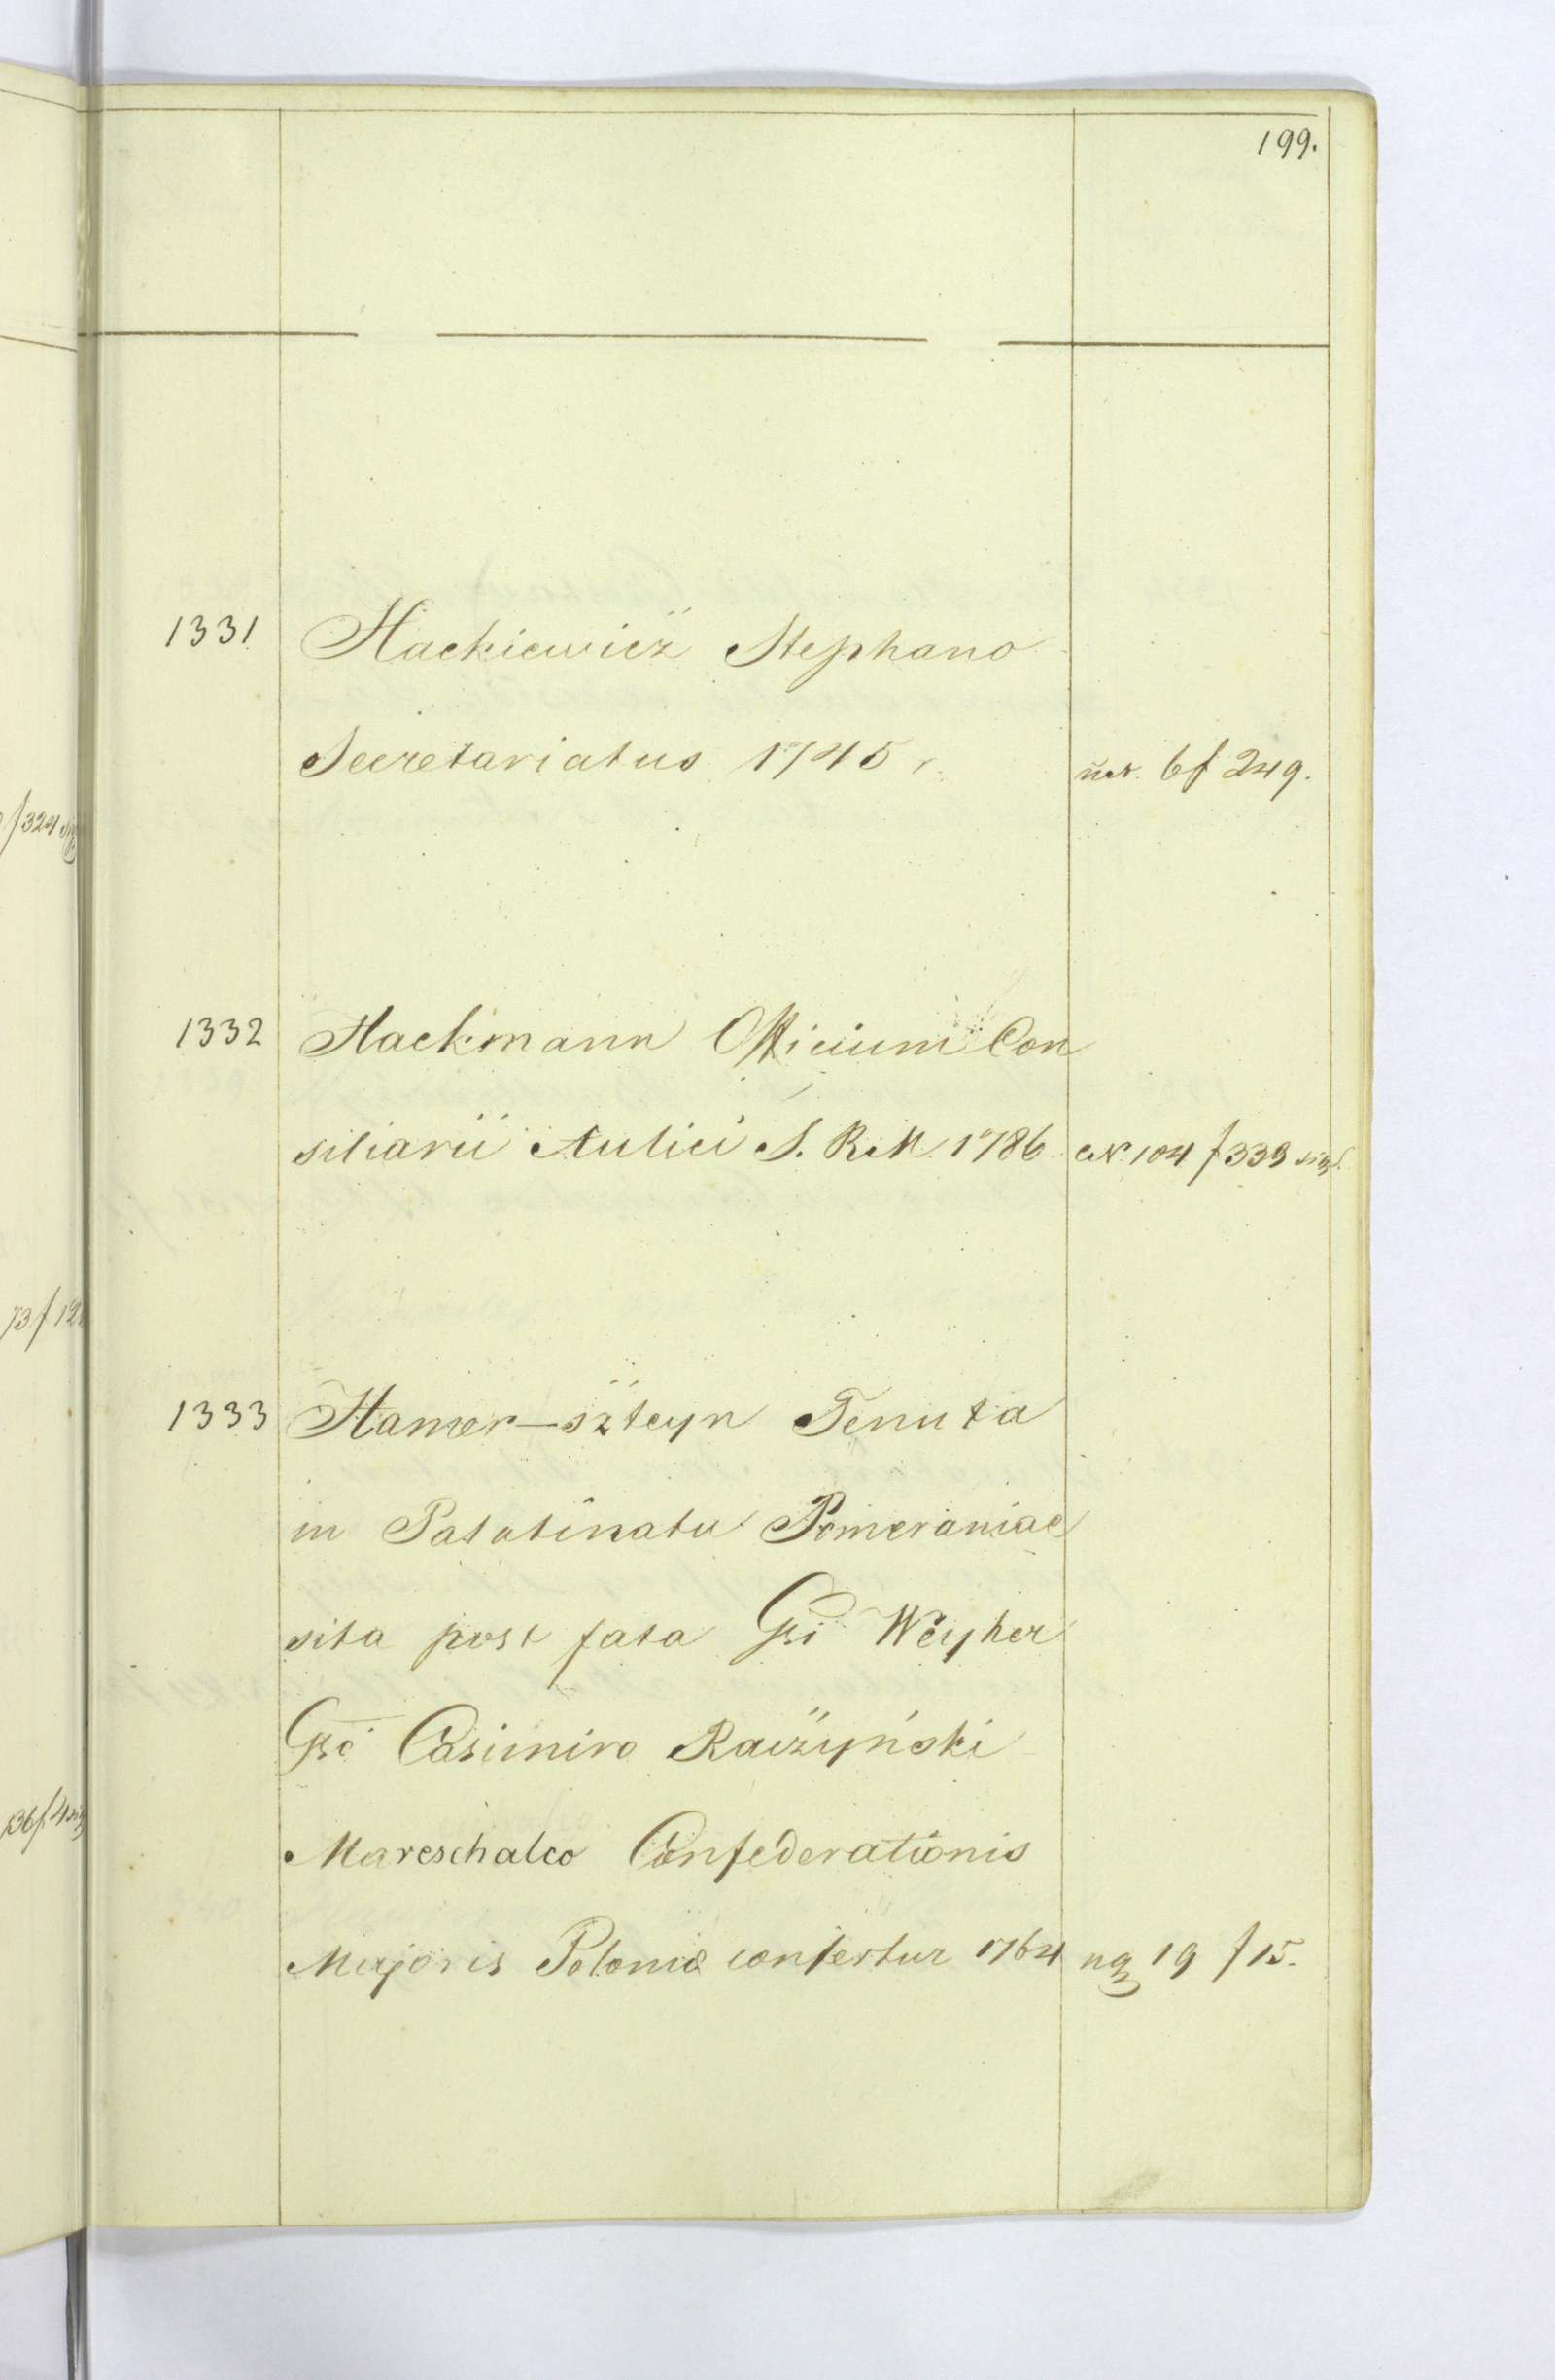 199.
1331 Hackiewicz Stephano
Secretariatus 1745 r. 6 f 249.
1332 Hackmann Officium Con
siliarii Aulici S. R. M. 1786 N. 104 f 339
1333 Hamer-szteyn Tenuta
in Palatinatu Pomeraniae
sita post fata Gsi Weyher
Gso Casimiro Raczyński
Mareschalco Confederationis
Majoris Poloniæ confertur 1764 19 f 15.